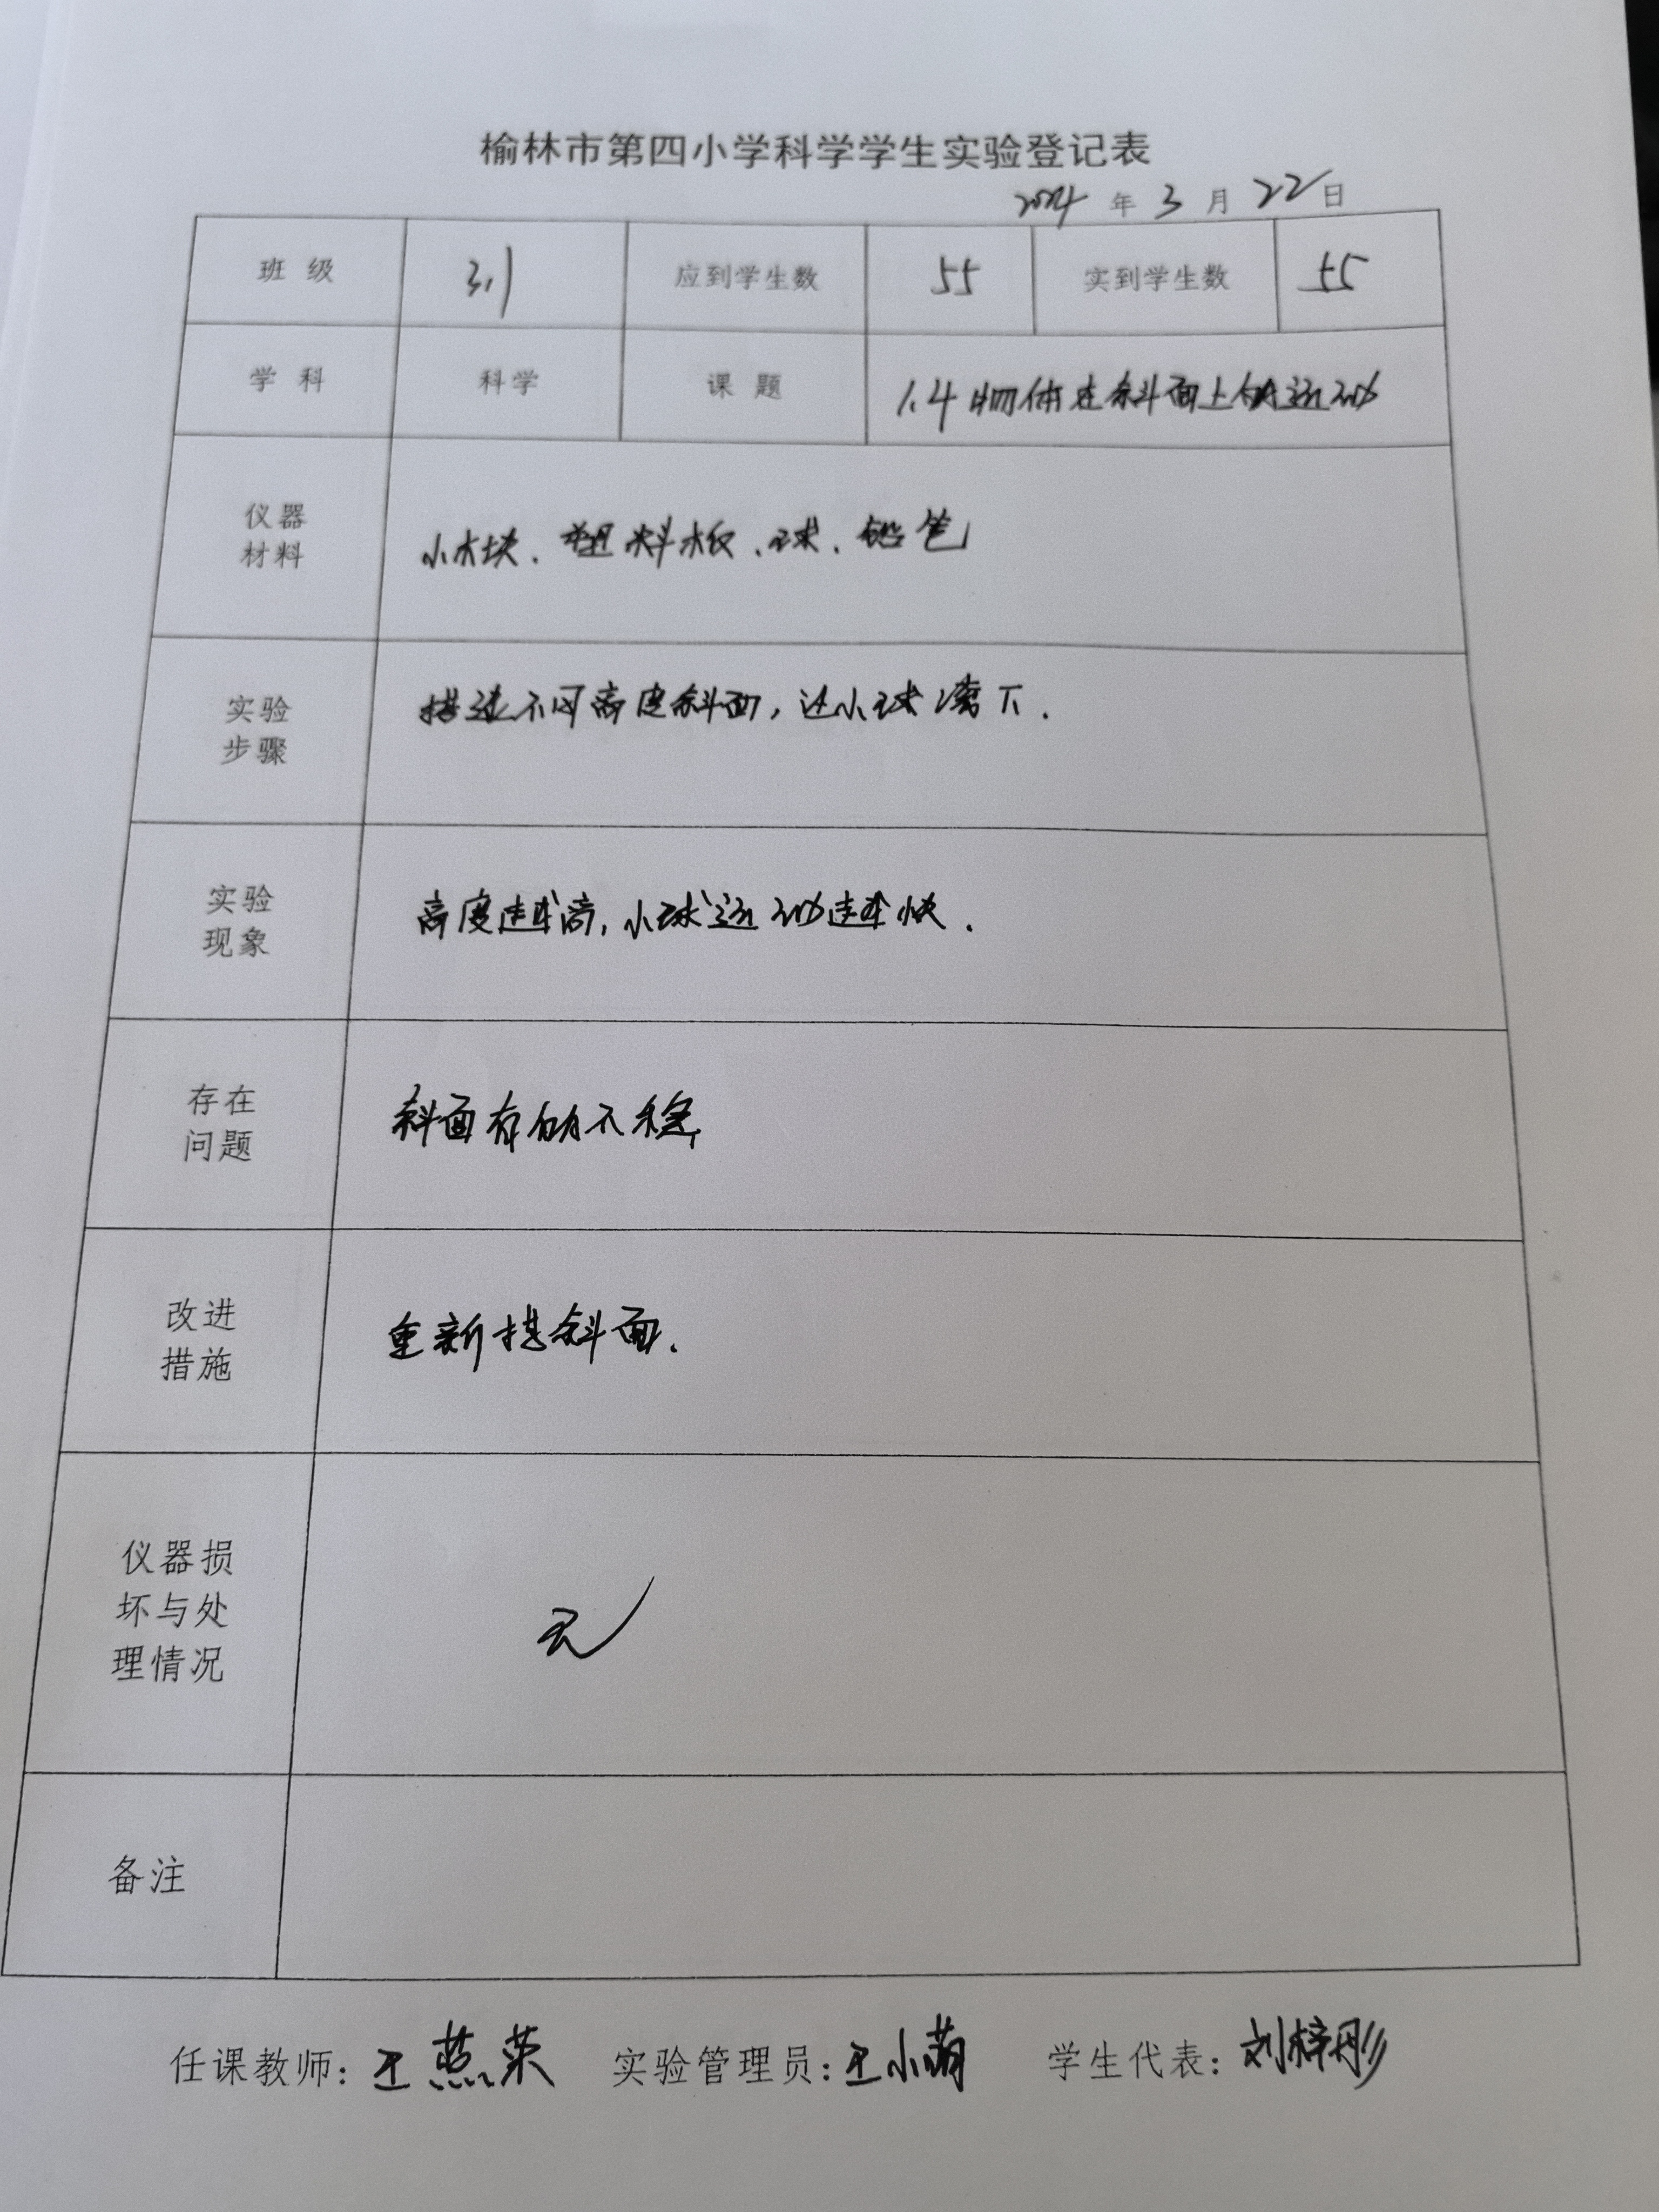 榆林市第四小学科学学生实验登记表
2024 年 3 月 22 日
班 级 3.1 应到学生数 55 实到学生数 55
学 科 科学 课 题 1.4物体在斜面上的运动
仪器
材料
小木块、塑料板、球、铅笔
实验
步骤
搭建不同高度斜面，让小球滚下.
实验
现象
高度越高,小球运动越快.
存在
问题
斜面有的不稳
改进
措施
重新搭斜面.
仪器损
坏与处
理情况
无
备注
任课教师: 王燕荣 实验管理员: 王小萌 学生代表: 刘梓彤